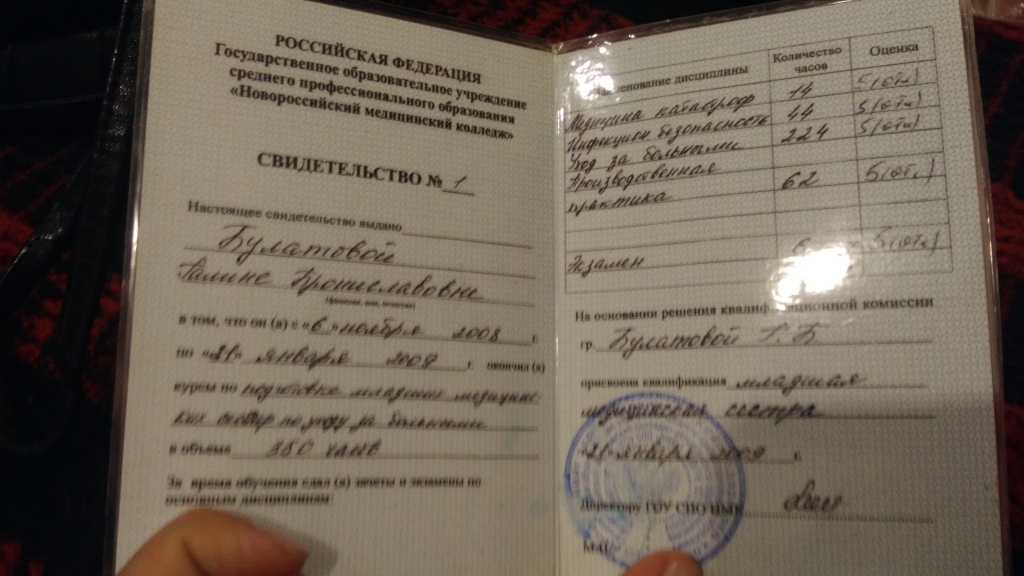 РОССИЙСКАЯ ФЕДЕРАЦИЯ
Государственное образовательное учреждение
среднего профессионального образования
«Новороссийский медицинский колледж»
СВИДЕТЕЛЬСТВО № 1
Настоящее свидетельство выдано
Булатовой
Галине Брониславовне
(фамилия, имя, отчество)
в том, что он (а) с «6» ноября 2008 г.
по «21» января 2009 г. окончил (а)
курсы по подготовке младших медицинс
ких сестер по уходу за больными
в объеме 350 часов
За время обучения сдал (а) зачеты и экзамены по
основным дисциплинам:
Наименование дисциплины Количество часов Оценка
Медицина катастроф 14 5(отл)
Инфекцион. безопасность 44 5(отл)
Уход за больными 224 5(отл)
Производственная
практика 62 5(отл.)
Экзамен 6 5(отл)
На основании решения квалификационной комиссии
гр. Булатовой Г. Б.
присвоена квалификация младшая
медицинская сестра
«21» января 2009 г.
Директор ГОУ СПО НМК
М.П.